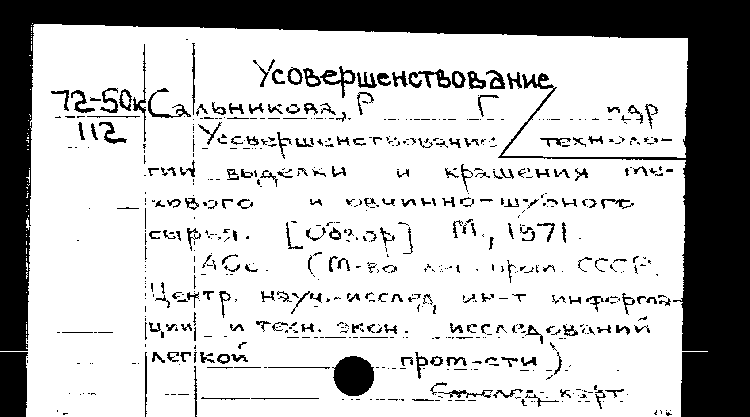 Усовершенствование
72-50к Сальникова, Р Г и др
112 Усовершенствование техноло-
гии выделки и крашения ме-
хового и овчинно-шубного
сырья. [Обзор] М., 1971.
40с. (М-во лег. пром. СССР.
Центр. науч.-исслед ин-т информа-
ции и техн. экон. исследований
легкой пром-сти)
См. след. карт